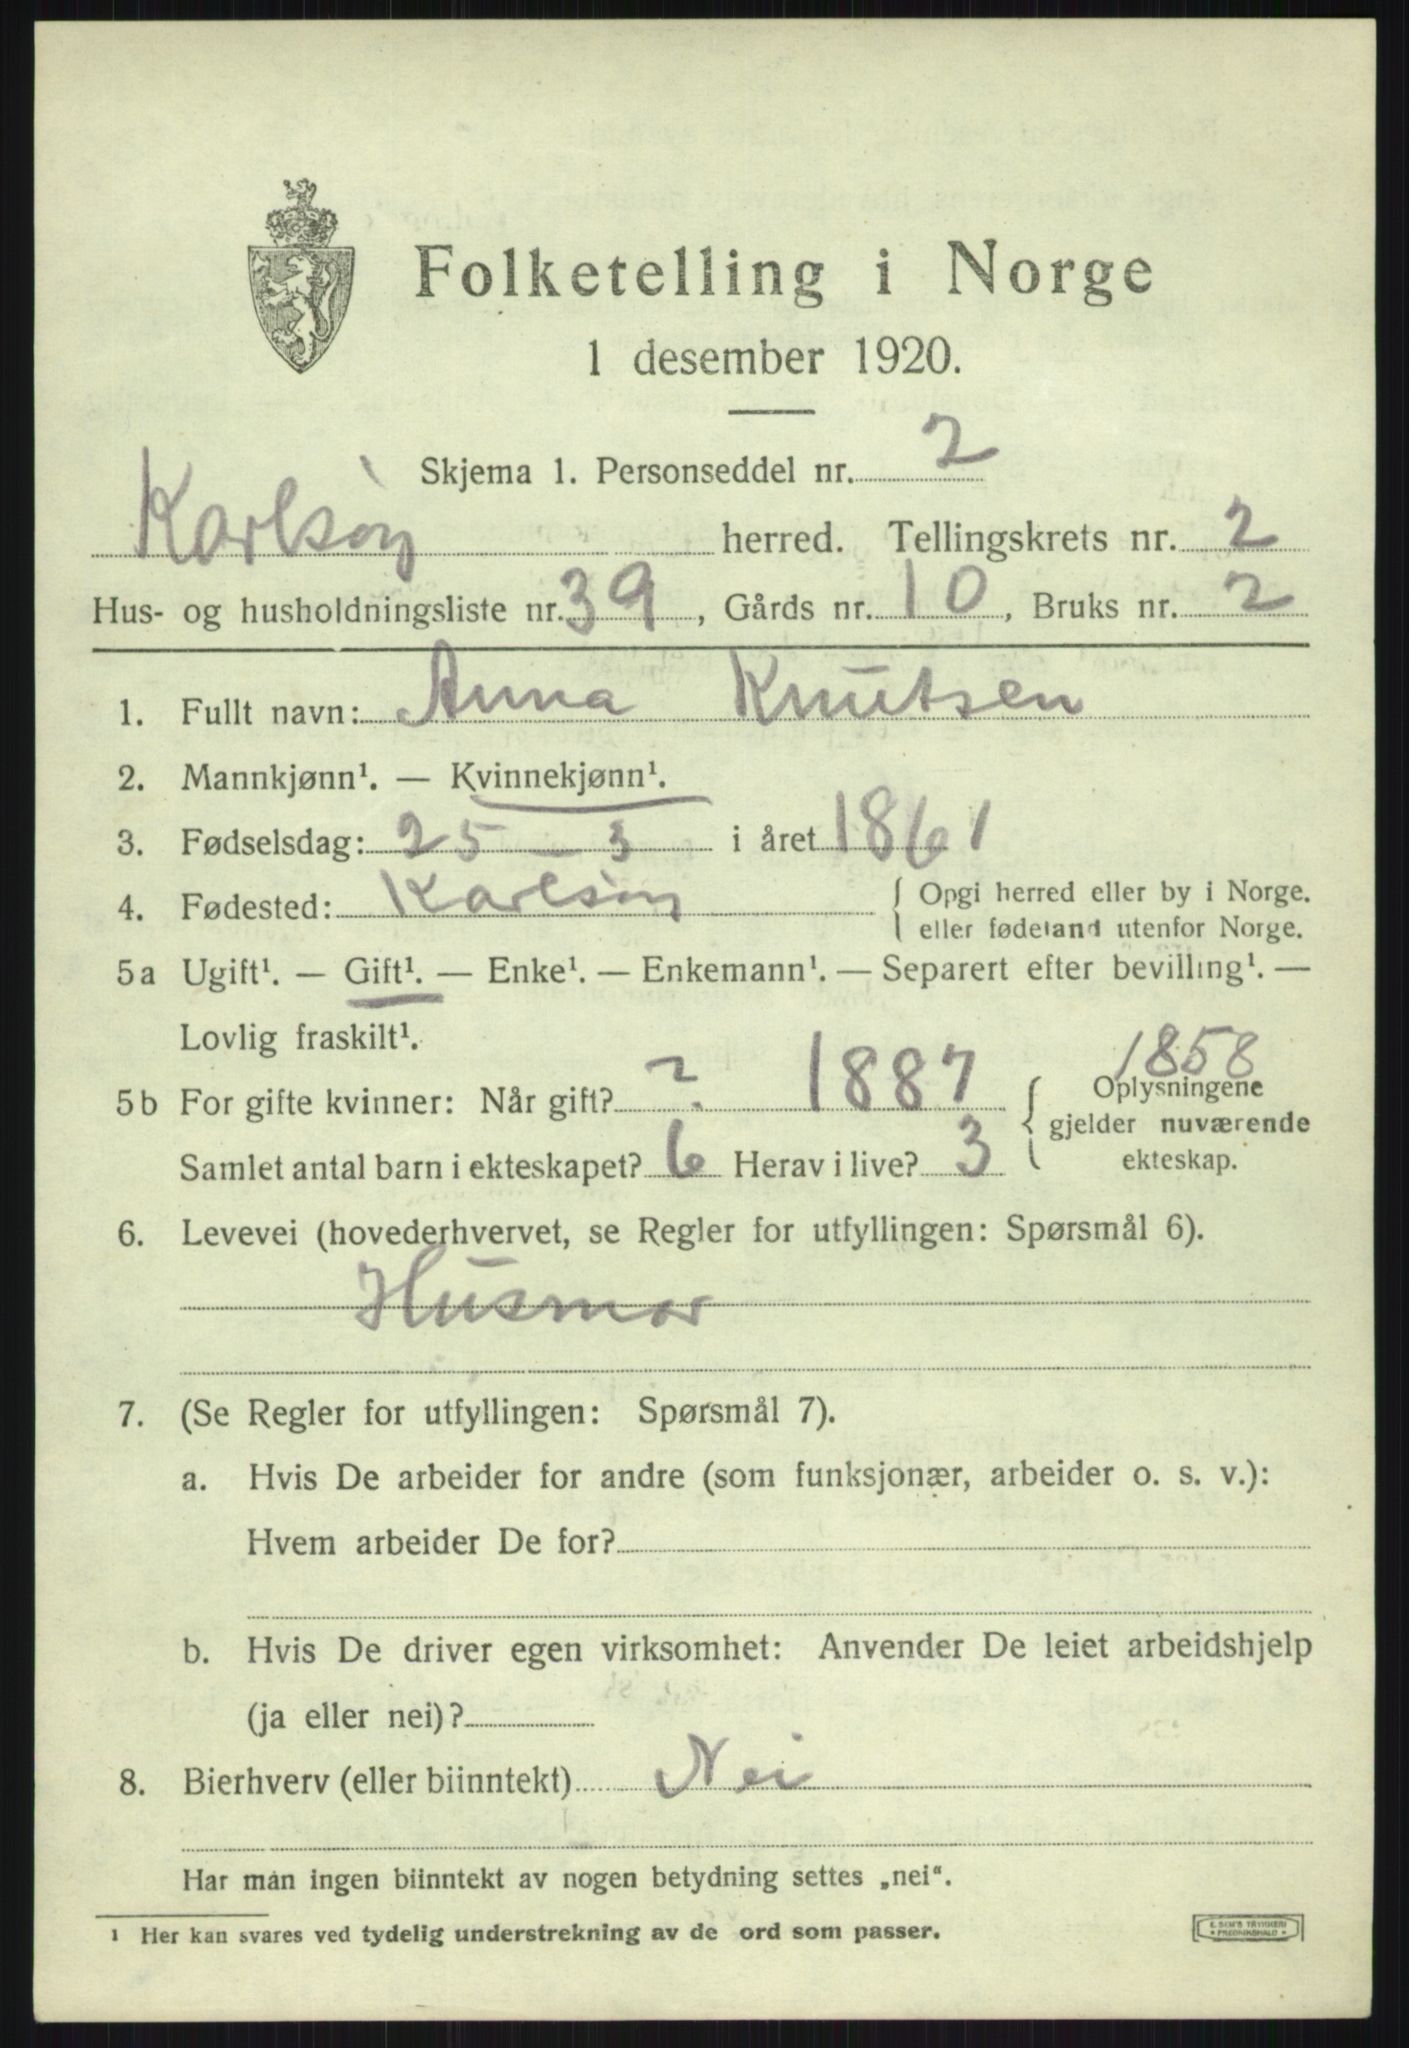 Folketelling i Norge
1 desember 1920.
Skjema 1. Personseddel nr. 2
Karlsöy herred. Tellingskrets nr. 2
Hus- og husholdningsliste nr. 39, Gårds nr. 10, Bruks nr. 2
1. Fullt navn: Anna Knutsen
2. Mannkjønn¹. — Kvinnekjønn¹.
3. Fødselsdag: 25 – 3 i året 1861
4. Fødested: Karlsöy { Opgi herred eller by i Norge.
eller fødeland utenfor Norge.
5a Ugift¹. — Gift¹. — Enke¹. — Enkemann¹. — Separert efter bevilling¹. —
Lovlig fraskilt¹.
1858
5b For gifte kvinner: Når gift? ? 1887 { Oplysningene
gjelder nuværende
Samlet antal barn i ekteskapet? 6 Herav i live? 3 ekteskap.
6. Levevei (hovederhvervet, se Regler for utfyllingen: Spørsmål 6).
Husmor
7. (Se Regler for utfyllingen: Spørsmål 7).
a. Hvis De arbeider for andre (som funksjonær, arbeider o. s. v.):
Hvem arbeider De for?
b. Hvis De driver egen virksomhet: Anvender De leiet arbeidshjelp
(ja eller nei)?
8. Bierhverv (eller biinntekt) Nei
Har man ingen biinntekt av nogen betydning settes „nei“.
¹ Her kan svares ved tydelig understrekning av de ord som passer.
E. SEM'S TRYKKERI
* FREDRIKSHALD *